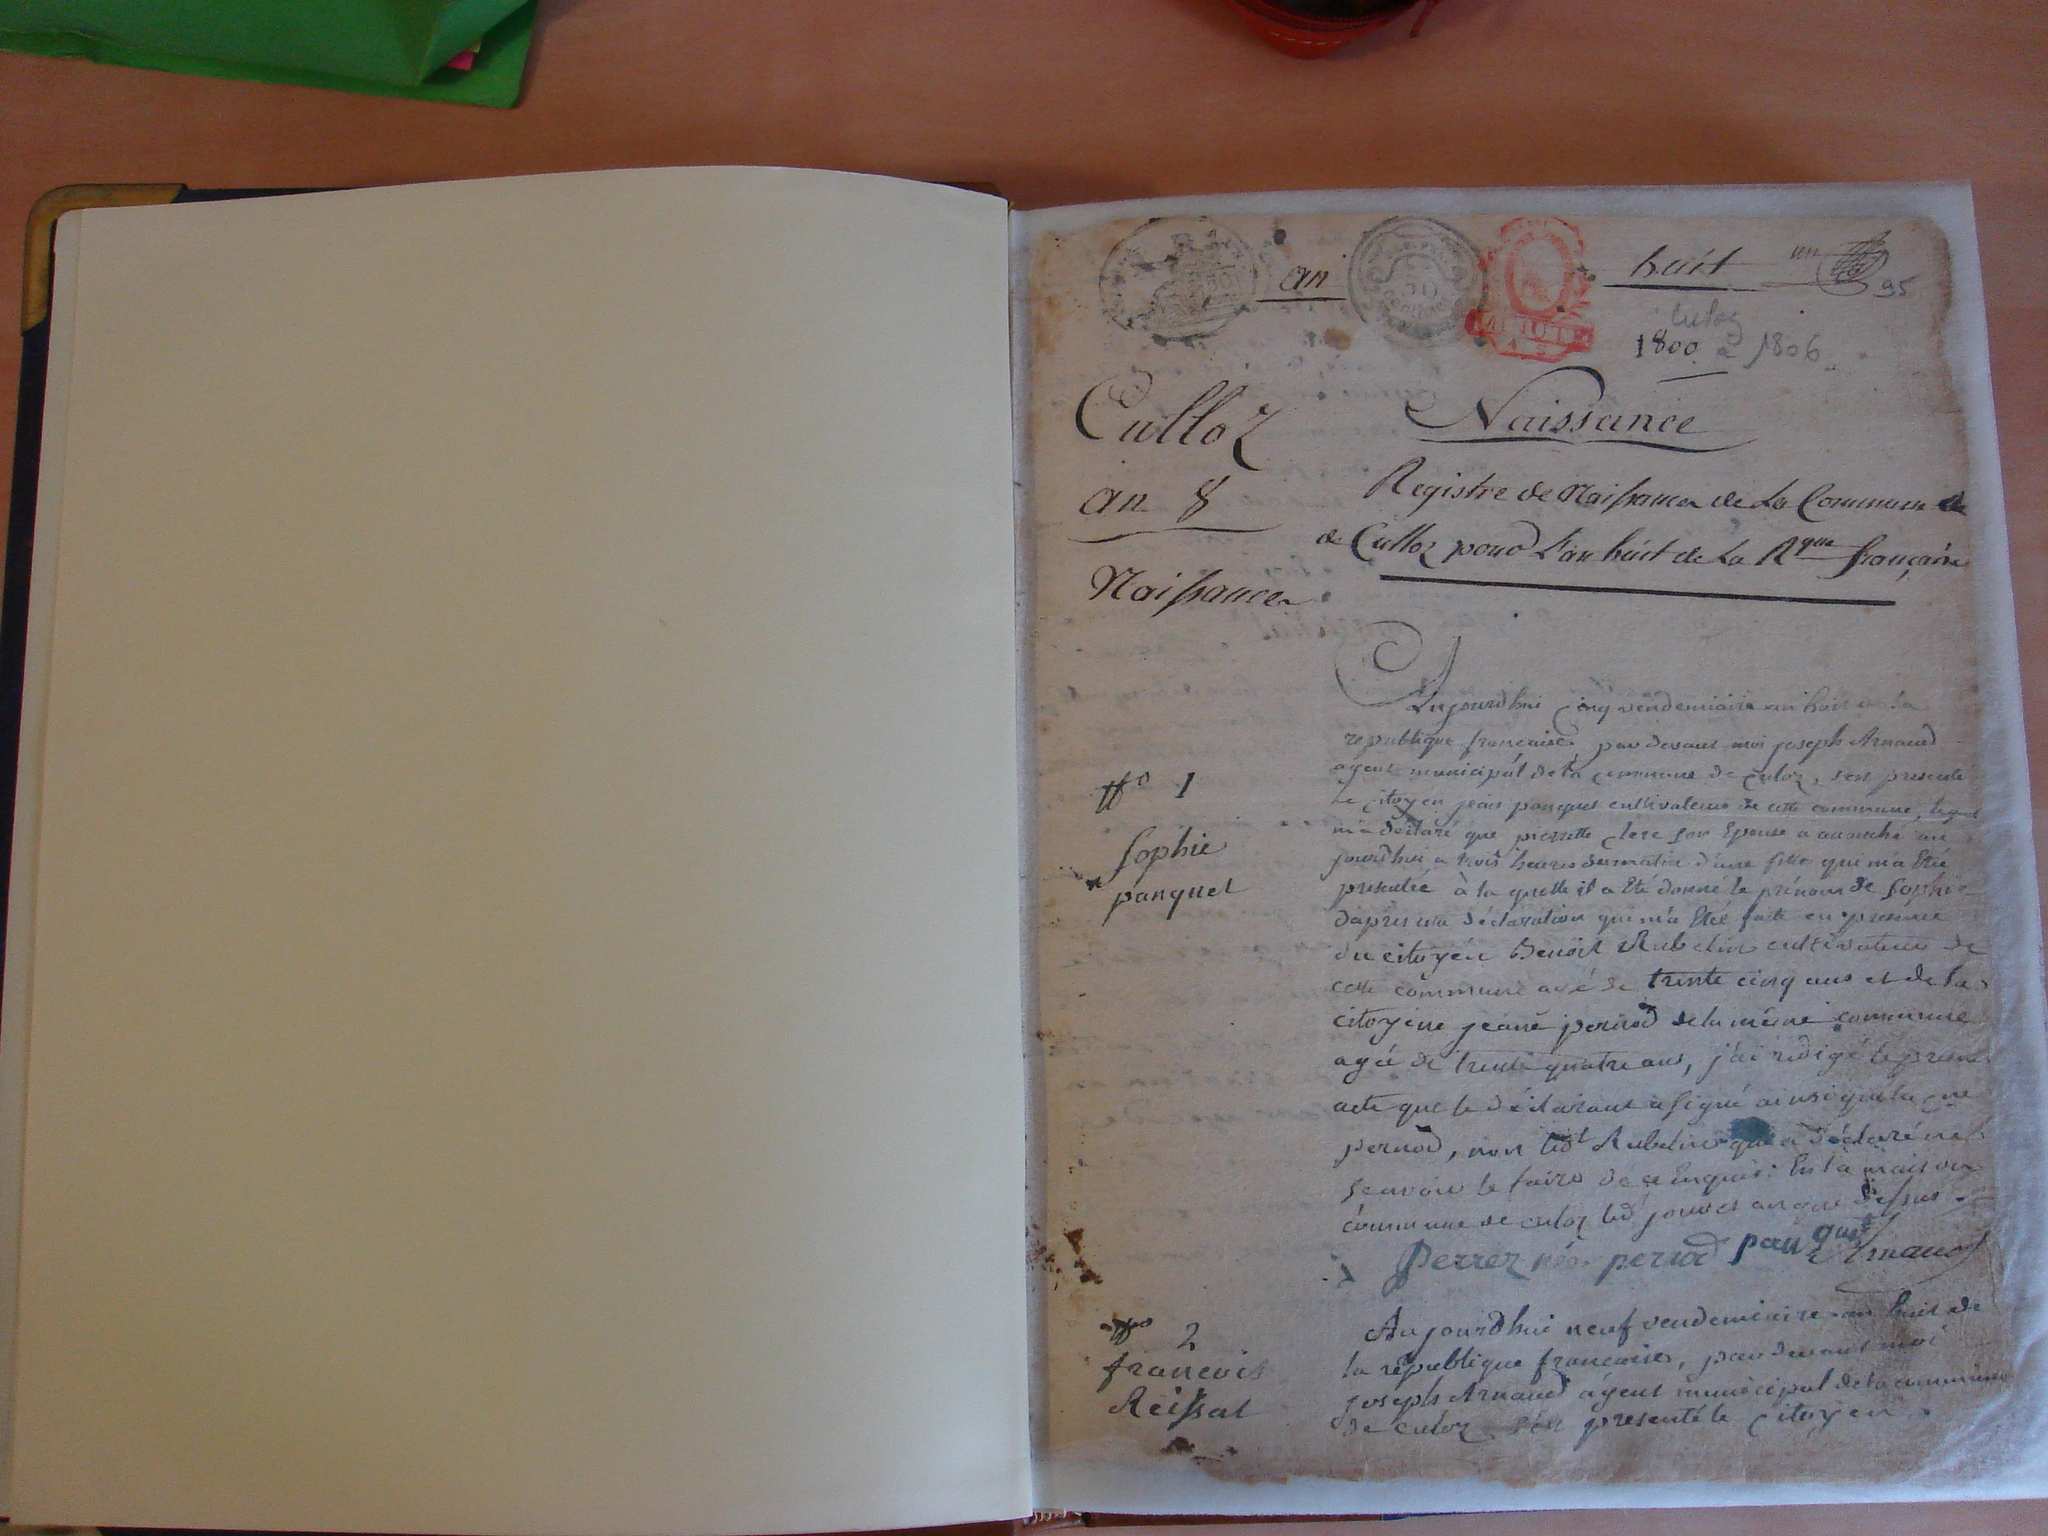 an huit un
95
Culoz
1800 a 1806
Culloz
an 8
Naissances
Naissance
Registre de Naissances de La Commune de
de Culloz pour L'an huit de La Rque française
N° 1
Sophie
panquet
Aujourdhui cinq vendemiaire an huit de la
republique francaise, par devant moi joseph Arnaud
agent municipal de la commune de culoz, s'est presenté
Le citoyen jean panquet cultivateur de cette commune, lequel
m'a déclaré que pierrette clerc son Epouse a accouché au
jourdhui a trois heures du matin d'une fille qui m'a Eté
presentée à la quelle il a Eté donné le prénom de Sophie
d'apres une déclaration qui m'a Eté faite en presence
du citoyen Benoit Rubelin cultivateur de
cette commune agé de trente cinq ans et de la
citoyene jeane pernod de la même commune
agée de trente quatre ans, j'ai redigé le present
acte que le déclarant a signé ainsi que la cne
pernod, non led.t Rubelin qui a déclaré ne
scavoir le faire de ce Enquis. En la maison
commune de culoz led jour et an que dessus
Perrez née pernod panquet Arnaud
N° 2
francois
Reissat
Aujourdhui neuf vendemiaire an huit de
la republique francaise, par devant moi
joseph Arnaud agent municipal de la commune
de culoz s'est presenté le citoyen